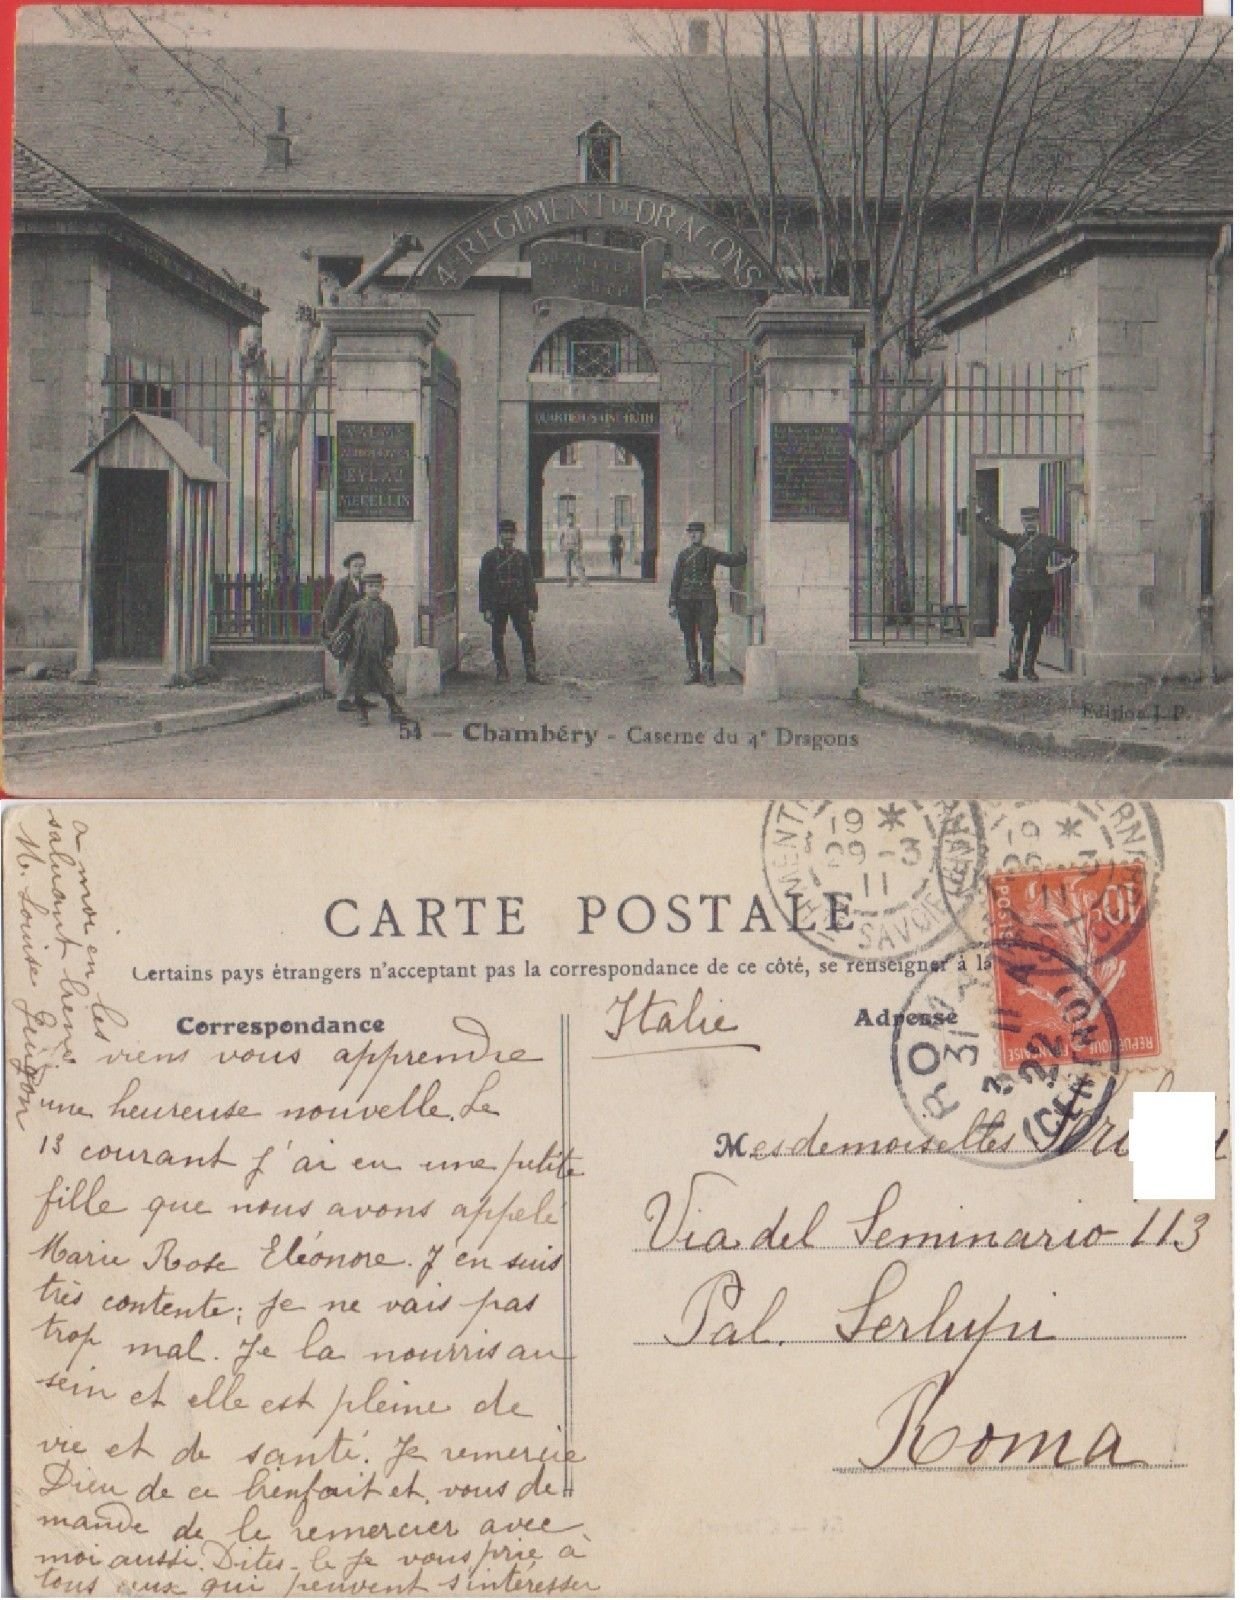 4e REGIMENT DE DRAGONS
QUARTIER
QUARTIER SAINT-RUTH
VALMY
EYLAU
MEDELLIN
Edition J. P.
54 — Chambéry - Caserne du 4e Dragons
CARTE POSTALE
Certains pays étrangers n'acceptant pas la correspondance de ce côté, se renseigner à la
Correspondance
Adresse
viens vous apprendre
une heureuse nouvelle. Le
13 courant j'ai eu une petite
fille que nous avons appelé
Marie Rose Eléonore. J'en suis
très contente; je ne vais pas
trop mal. Je la nourris au
sein et elle est pleine de
vie et de santé. Je remercie
Dieu de ce bienfait et vous de-
mande de le remercier avec
moi aussi. Dites-le je vous prie à
tous ceux qui peuvent s'intéresser
a moi en les
saluant bien
M. Louise
Italie
Mesdemoiselles
Via del Seminario 113
Pal. Serlupi
Roma
19 *
29-3
11
SAVOIE
19 *
3
11
ROMA
31 3 11
22
POSTES
10c
REPUBLIQUE FRANÇAISE